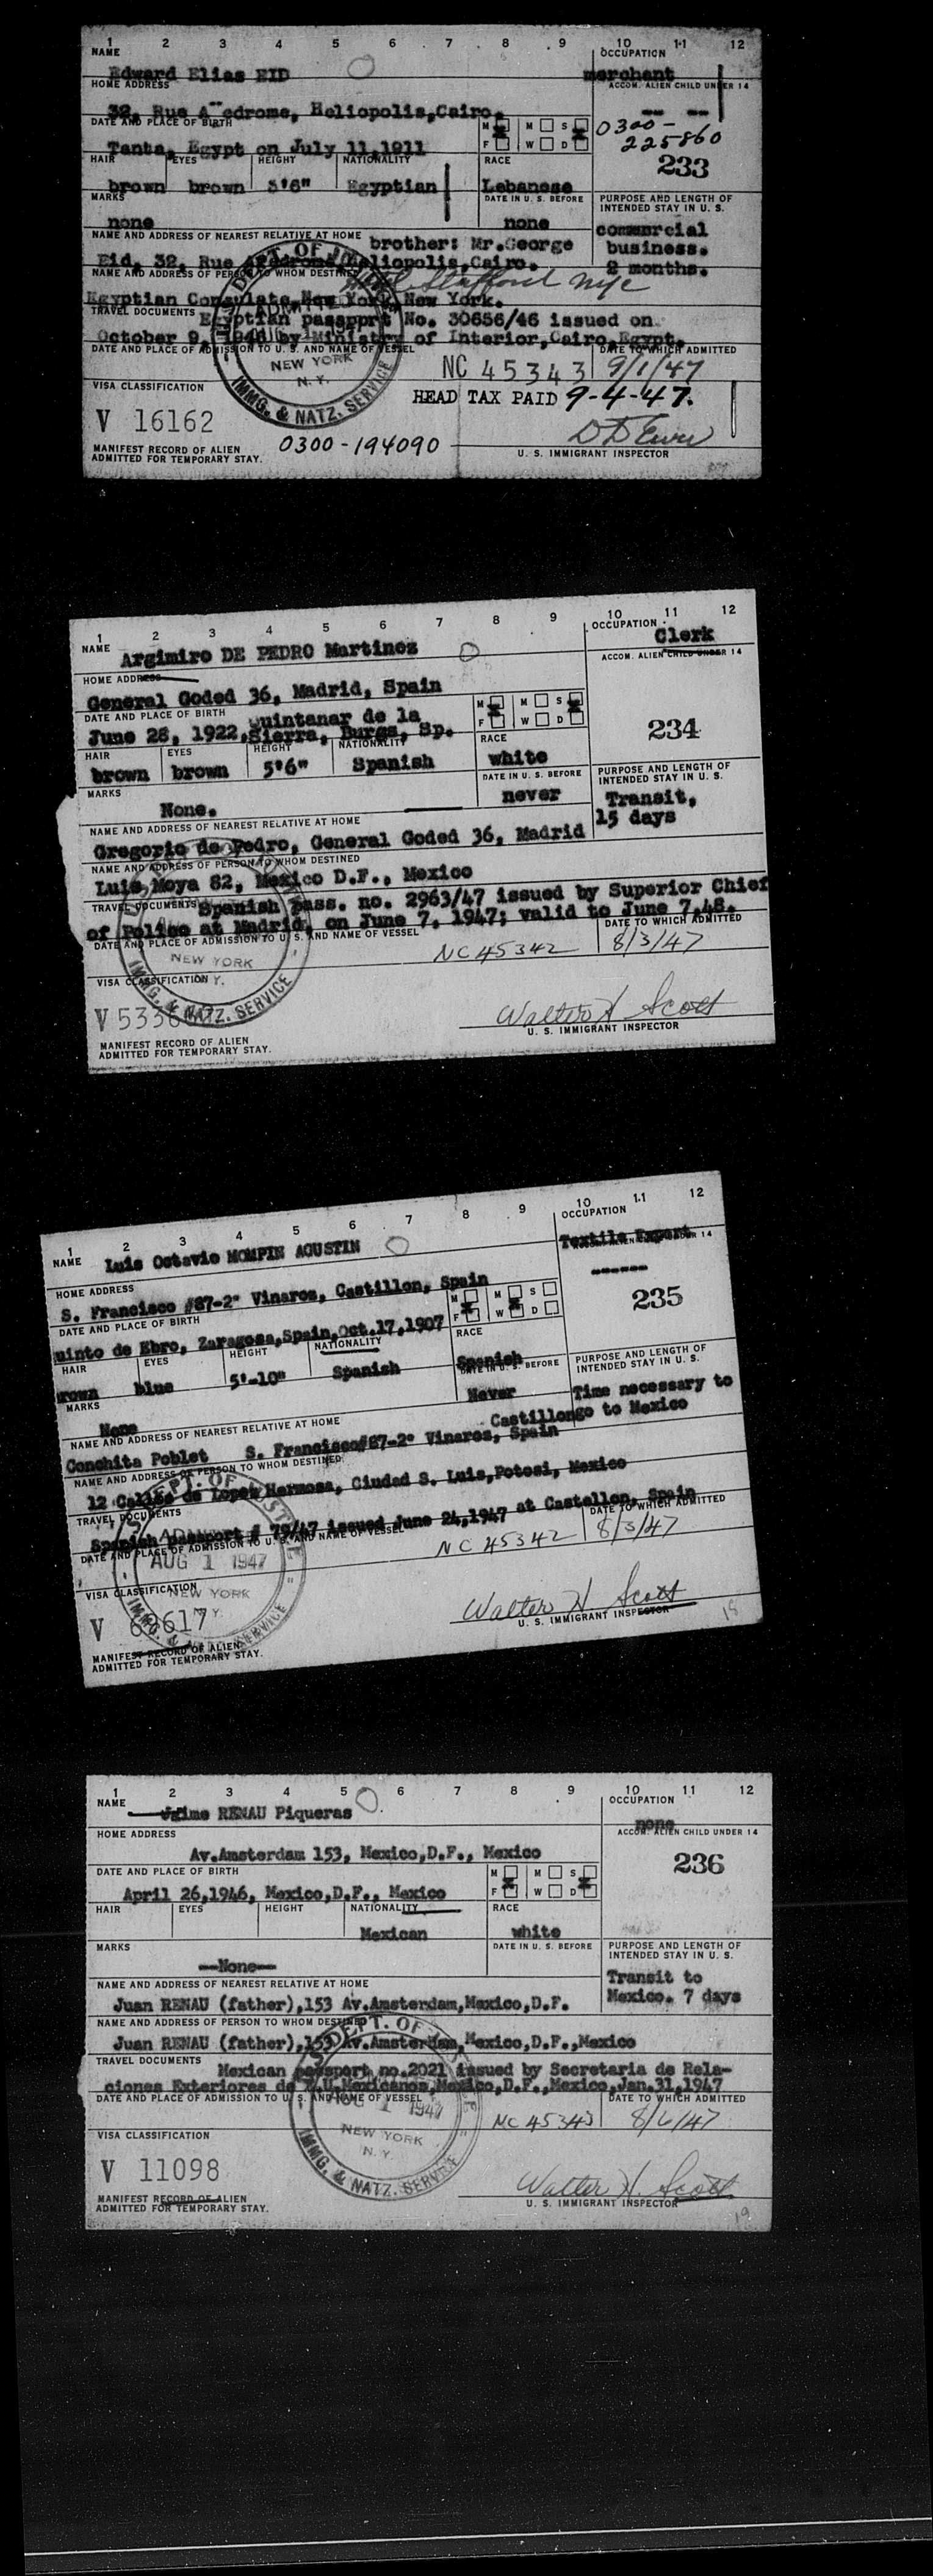 1 2 3 4 5 6 7 8 9 10 11 12
NAME OCCUPATION
Edward Elias EID merchant
HOME ADDRESS ACCOM. ALIEN CHILD UNDER 14
32, Rue A edrome, Heliopolis, Cairo. -- --
DATE AND PLACE OF BIRTH M M S 0300-
F W D 225860
Tanta, Egypt on July 11, 1911
HAIR EYES HEIGHT NATIONALITY RACE 233
brown brown 5'6" Egyptian Lebanese
MARKS DATE IN U. S. BEFORE PURPOSE AND LENGTH OF
INTENDED STAY IN U. S.
none none commercial
NAME AND ADDRESS OF NEAREST RELATIVE AT HOME brother: Mr. George business.
Eid, 32, Rue Aedrome, Heliopolis, Cairo. 2 months.
NAME AND ADDRESS OF PERSON TO WHOM DESTINED Hotel Stafford nyc
Egyptian Consulate, New York, New York.
TRAVEL DOCUMENTS Egyptian passpprt No. 30656/46 issued on
October 9, 1946 by Ministry of Interior, Cairo, Egypt.
DATE AND PLACE OF ADMISSION TO U. S. AND NAME OF VESSEL DATE TO WHICH ADMITTED
NEW YORK NC 45343 9/1/47
N. Y.
VISA CLASSIFICATION HEAD TAX PAID 9-4-47.
IMMG. & NATZ. SERVICE
V 16162
MANIFEST RECORD OF ALIEN 0300-194090
ADMITTED FOR TEMPORARY STAY. U. S. IMMIGRANT INSPECTOR
1 2 3 4 5 6 7 8 9 10 11 12
NAME OCCUPATION
Argimiro DE PEDRO Martinez Clerk
HOME ADDRESS ACCOM. ALIEN CHILD UNDER 14
General Goded 36, Madrid, Spain
DATE AND PLACE OF BIRTH quintanar de la M M S
June 28, 1922, Sierra, Burgs, Sp. F W D 234
HAIR EYES HEIGHT NATIONALITY RACE
brown brown 5'6" Spanish white
MARKS DATE IN U. S. BEFORE PURPOSE AND LENGTH OF
INTENDED STAY IN U. S.
None. never Transit,
NAME AND ADDRESS OF NEAREST RELATIVE AT HOME 15 days
Gregorio de Pedro, General Goded 36, Madrid
NAME AND ADDRESS OF PERSON TO WHOM DESTINED
Luis Moya 82, Mexico D.F., Mexico
TRAVEL DOCUMENTS Spanish pass. no. 2963/47 issued by Superior Chief
of Police at Madrid, on June 7, 1947; valid to June 7,48.
DATE AND PLACE OF ADMISSION TO U. S. AND NAME OF VESSEL DATE TO WHICH ADMITTED
NEW YORK NC 45342 8/3/47
VISA CLASSIFICATION
IMMG. & NATZ. SERVICE
Walter H Scott
U. S. IMMIGRANT INSPECTOR
MANIFEST RECORD OF ALIEN
ADMITTED FOR TEMPORARY STAY.
1 2 3 4 5 6 7 8 9 10 11 12
NAME OCCUPATION
Luis Octavio MOMPIN AGUSTIN Textile Expert
HOME ADDRESS
S. Francisco #87-2° Vinaros, Castillon, Spain
DATE AND PLACE OF BIRTH M M S
F W D 235
uinto de Ebro, Zaragosa, Spain, Oct. 17, 1907
HAIR EYES HEIGHT NATIONALITY RACE
rown blue 5'-10" Spanish Spanish
MARKS DATE IN U. S. BEFORE PURPOSE AND LENGTH OF
INTENDED STAY IN U. S.
None Never Time necessary to
NAME AND ADDRESS OF NEAREST RELATIVE AT HOME Castillon go to Mexico
Conchita Poblet S. Francisco #87-2° Vinaros, Spain
NAME AND ADDRESS OF PERSON TO WHOM DESTINED
12 Calixo de Lopez Hermosa, Ciudad S. Luis, Potosi, Mexico
TRAVEL DOCUMENTS
Spanish passport # 75/47 issued June 24, 1947 at Castellon, Spain
DATE AND PLACE OF ADMISSION TO U. S. AND NAME OF VESSEL DATE TO WHICH ADMITTED
AUG 1 1947 NC 45342 8/3/47
VISA CLASSIFICATION NEW YORK
Walter H Scott
U. S. IMMIGRANT INSPECTOR 18
MANIFEST RECORD OF ALIEN
ADMITTED FOR TEMPORARY STAY.
1 2 3 4 5 6 7 8 9 10 11 12
NAME OCCUPATION
Jaime RENAU Piqueras none
HOME ADDRESS ACCOM. ALIEN CHILD UNDER 14
Av. Amsterdam 153, Mexico, D.F., Mexico
DATE AND PLACE OF BIRTH M M S 236
April 26, 1946, Mexico, D.F., Mexico F W D
HAIR EYES HEIGHT NATIONALITY RACE
Mexican white
MARKS DATE IN U. S. BEFORE PURPOSE AND LENGTH OF
INTENDED STAY IN U. S.
--None-- Transit to
NAME AND ADDRESS OF NEAREST RELATIVE AT HOME Mexico. 7 days
Juan RENAU (father), 153 Av. Amsterdam, Mexico, D.F.
NAME AND ADDRESS OF PERSON TO WHOM DESTINED
Juan RENAU (father), 153 Av. Amsterdam, Mexico, D.F., Mexico
TRAVEL DOCUMENTS Mexican passport no. 2021 issued by Secretaria de Rela-
ciones Exteriores de E.U. Mexicanos, Mexico, D.F., Mexico, Jan. 31, 1947
DATE AND PLACE OF ADMISSION TO U. S. AND NAME OF VESSEL DATE TO WHICH ADMITTED
AUG 1 1947 NC 45343 8/6/47
NEW YORK
N. Y.
VISA CLASSIFICATION
IMMG. & NATZ. SERVICE
V 11098
Walter H. Scott
MANIFEST RECORD OF ALIEN U. S. IMMIGRANT INSPECTOR
ADMITTED FOR TEMPORARY STAY. 19